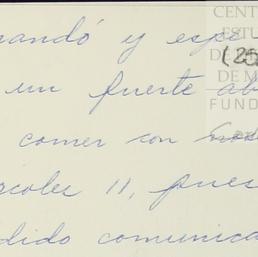 mandó y espe
un fuerte ab
comer con
rcoles 11, pues
dido comunica
(25
CENT
ESTU
D
DE M
FUND